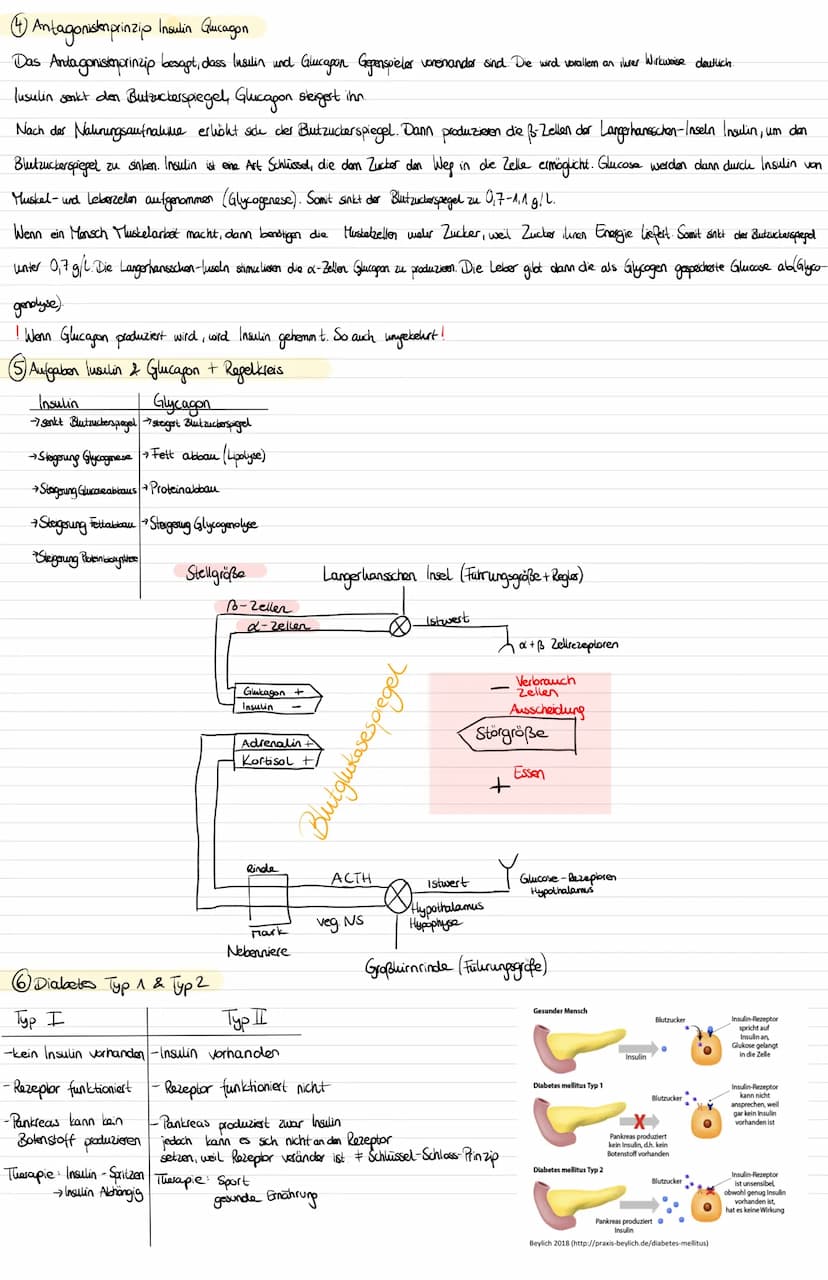 ④ Antagonistenprinzip Insulin Glucagon
Das Antagonistenprinzip besagt, dass Insulin und Glucagon Gegenspieler voneinander sind. Die wird vorallem an ihrer Wirkweise deutlich.
Insulin senkt den Blutzuckerspiegel, Glucagon steigert ihn
Nach der Nahrungsaufnahme erhöht sich der Blutzuckerspiegel. Dann produzieren die β-Zellen der Langerhansschen-Inseln Insulin, um den
Blutzuckerspiegel zu sinken. Insulin ist eine Art Schlüssel, die dem Zucker den Weg in die Zelle ermöglicht. Glucose werden dann durch Insulin von
Muskel- und Leberzellen aufgenommen (Glycogenese). Somit sinkt der Blutzuckerspiegel zu 0,7-1,1 g/L.
Wenn ein Mensch Muskelarbeit macht, dann benötigen die Muskelzellen mehr Zucker, weil Zucker ihnen Energie liefert. Somit sinkt der Blutzuckerspiegel
unter 0,7 g/L. Die Langerhansschen-Inseln stimulieren die α-Zellen Glucagon zu produzieren. Die Leber gibt dann die als Glycogen gespeicherte Glucose ab (Glyco-
genolyse).
! Wenn Glucagon produziert wird, wird Insulin gehemmt. So auch umgekehrt!
⑤ Aufgaben Insulin & Glucagon + Regelkreis
Insulin
Glycagon
→ senkt Blutzuckerspiegel
→ steigert Blutzuckerspiegel
→ Steigerung Glycogenese
→ Fett abbau (Lipolyse)
→ Steigerung Glucoseabbaus
→ Proteinabbau
→ Steigerung Fettabbau
→ Steigerung Glycogenolyse
→ Steigerung Proteinbiosynthese
Stellgröße
Langerhansschen Insel (Führungsgröße + Regler)
β-Zellen
α-Zellen
Istwert
α + β Zellrezeptoren
Glukagon +
Insulin −
Adrenalin +
Kortisol +
Blutglukosespiegel
− Verbrauch
Zellen
Ausscheidung
Störgröße
+ Essen
Rinde
ACTH
Istwert
Glucose-Rezeptoren
Hypothalamus
Hypothalamus
Hypophyse
veg NS
Mark
Nebenniere
Großhirnrinde (Führungsgröße)
⑥ Diabetes Typ 1 & Typ 2
Typ I
Typ II
- kein Insulin vorhanden
- Insulin vorhanden
- Rezeptor funktioniert
- Rezeptor funktioniert nicht
- Pankreas kann kein
Botenstoff produzieren
- Pankreas produziert zwar Insulin
jedoch kann es sich nicht an den Rezeptor
setzen, weil Rezeptor verändert ist ≠ Schlüssel-Schloss-Prinzip
Therapie: Insulin - Spritzen
→ Insulin Abhängig
Therapie: Sport
gesunde Ernährung
Gesunder Mensch
Blutzucker
Insulin
Insulin-Rezeptor
spricht auf
Insulin an,
Glukose gelangt
in die Zelle
Diabetes mellitus Typ 1
Blutzucker
Pankreas produziert
kein Insulin, d.h. kein
Botenstoff vorhanden
Insulin-Rezeptor
kann nicht
ansprechen, weil
gar kein Insulin
vorhanden ist
Diabetes mellitus Typ 2
Blutzucker
Pankreas produziert
Insulin
Insulin-Rezeptor
ist unsensibel,
obwohl genug Insulin
vorhanden ist,
hat es keine Wirkung
Beylich 2018 (http://praxis-beylich.de/diabetes-mellitus)